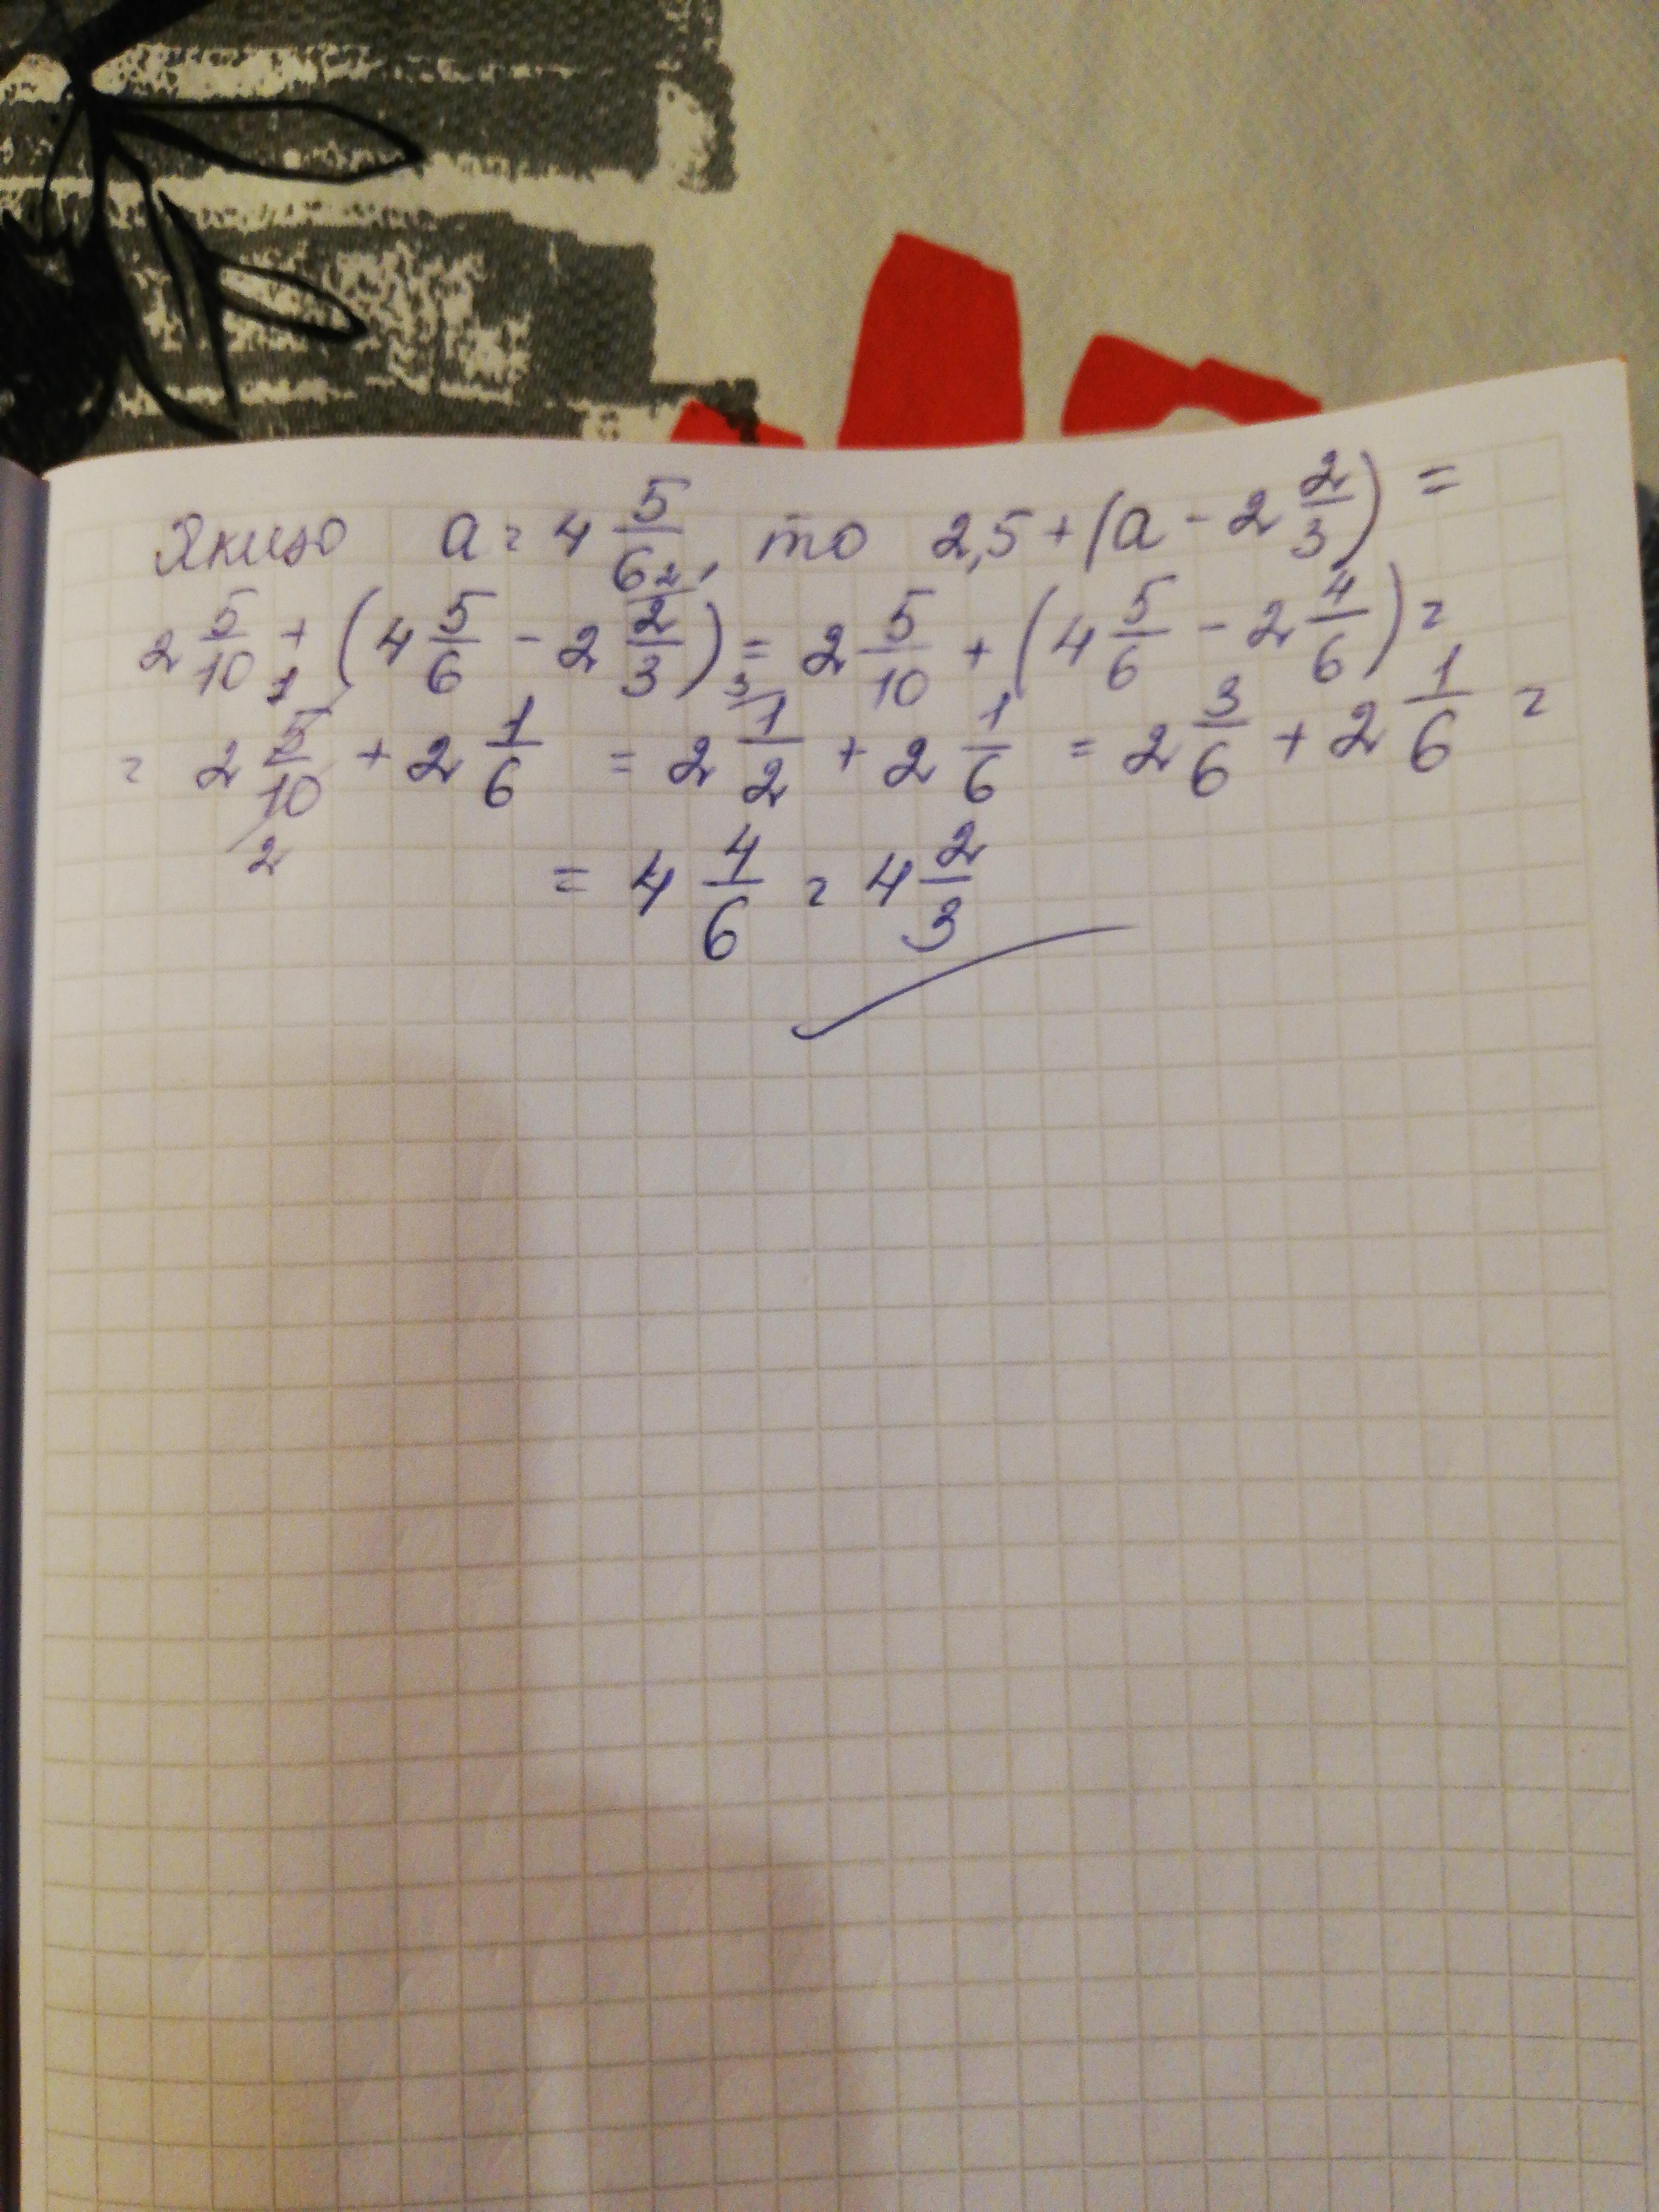 Якщо a = 4 5/6, то 2,5 + (a - 2 2/3) =
2 5/10 + (4 5/6 - 2 2/3) = 2 5/10 + (4 5/6 - 2 4/6) =
= 2 5/10 + 2 1/6 = 2 1/2 + 2 1/6 = 2 3/6 + 2 1/6 =
= 4 4/6 = 4 2/3